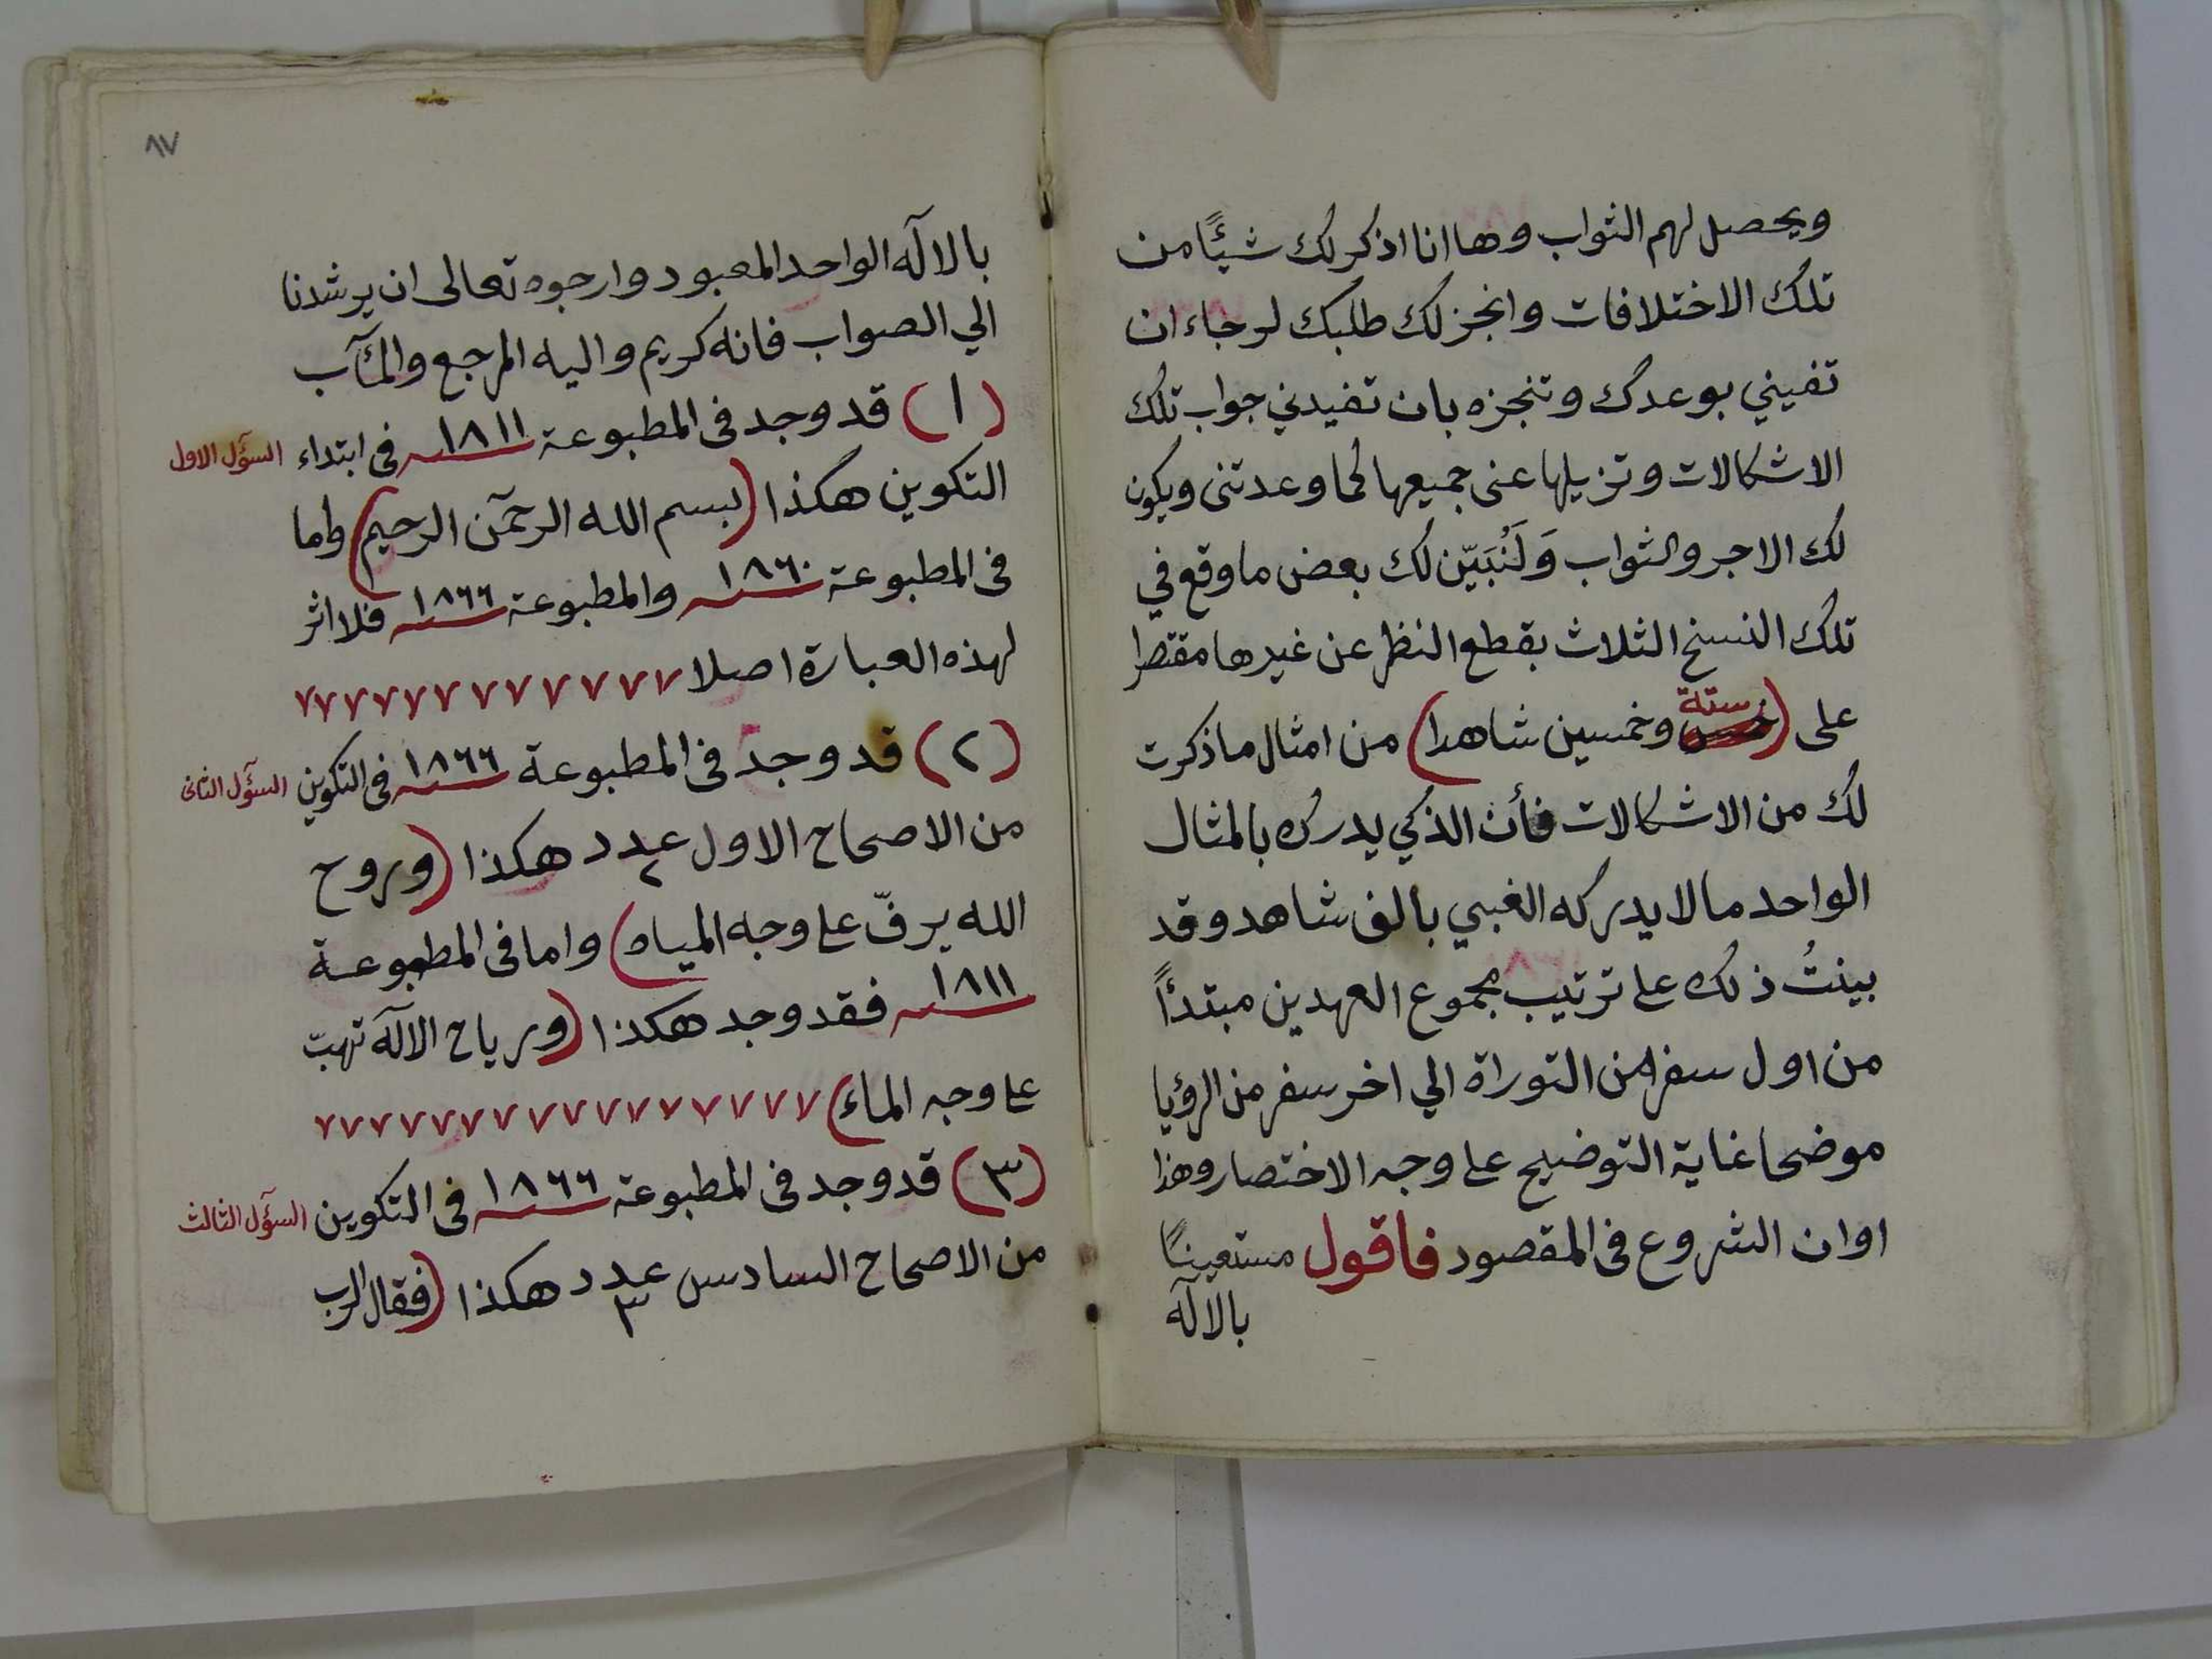 ويحصل لهم الثواب وها انا اذكر لك شيئًا من
تلك الاختلافات وانجز لك طلبك لرجاء ان
تفيني بوعدك وتنجزه بان تفيدني جواب تلك
الاشكالات وتزيلها عنى جميعها كما وعدتنى ويكون
لك الاجر والثواب وَلَنُبَيّن لك بعض ما وقع في
تلك النسخ الثلاث بقطع النظر عن غيرها مقتصرا
ستة
على (وخمسين شاهدا) من امثال ما ذكرت
لك من الاشكالات فأن الذكي يدرك بالمثال
الواحد مالا يدركه الغبي بالف شاهد وقد
بينتُ ذلك على ترتيب مجموع العهدين مبتدأً
من اول سفر من التوراة الي اخر سفر من الرؤيا
موضحا غاية التوضيح على وجه الاختصار وهذا
اوان الشروع فى المقصود فاقول مستعينًا
بالالٓه
٨٧
بالالٓه الواحد المعبود وارجوه تعالى ان يرشدنا
الي الصواب فانه كريم واليه المرجع والمآب
(١) قد وجد فى المطبوعة سنة ١٨١١ فى ابتداء
السؤل الاول
التكوين هكذا (بسم الله الرحمٓن الرحيم) واما
فى المطبوعة سنة ١٨٦٠ والمطبوعة سنة ١٨٦٦ فلا اثر
لهذه العبارة اصلا ٧٧٧٧٧٧٧٧٧٧٧٧٧
(٢) قد وجد فى المطبوعة سنة ١٨٦٦ فى التكوين
السؤل الثانى
من الاصحاح الاول عدد ٢ هكذا (وروح
الله يرفّ على وجه المياه) واما فى المطبوعة
سنة ١٨١١ فقد وجد هكذا (ورياح الالٓه تهبّ
على وجه الماء) ٧٧٧٧٧٧٧٧٧٧٧٧٧٧٧٧٧
(٣) قد وجد فى المطبوعة سنة ١٨٦٦ فى التكوين
السؤل الثالث
من الاصحاح السادس عدد ٣ هكذا (فقال الرب